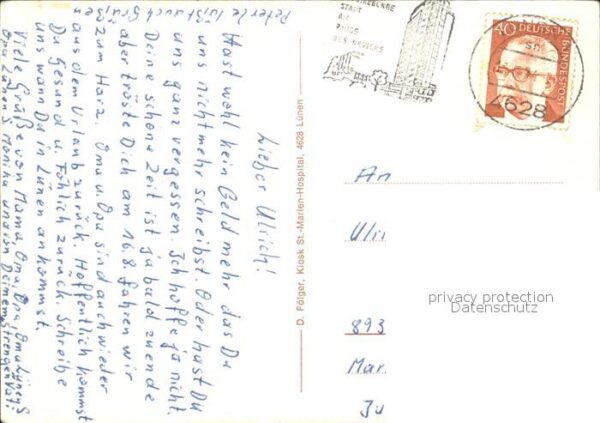 Lieber Ulrich!
Hast wohl kein Geld mehr das Du
uns nicht mehr schreibst. Oder hast Du
uns ganz vergessen. Ich hoffe ja nicht.
Deine schöne Zeit ist ja bald zuende
aber tröste Dich am 16.8. fahren wir
zum Harz. Oma u. Opa sind auch wieder
aus dem Urlaub zurück. Hoffentlich kommst
Du Gesund u. Fröhlich zurück. Schreibe
uns wann Du in Lünen ankommst.
Viele Grüße von Mama, Oma, Opa, Oma Lünen S
Opa Lünen S Monika und von Deinem strengen Vati
Peterle läßt auch Grüßen
D. Fölger, Kiosk St.-Marien-Hospital, 4628 Lünen
STADT
AM
RANDE
DES REVIERS
40
DEUTSCHE
BUNDESPOST
sn
4628
An
Ulri
893
Mar
Ju
privacy protection
Datenschutz